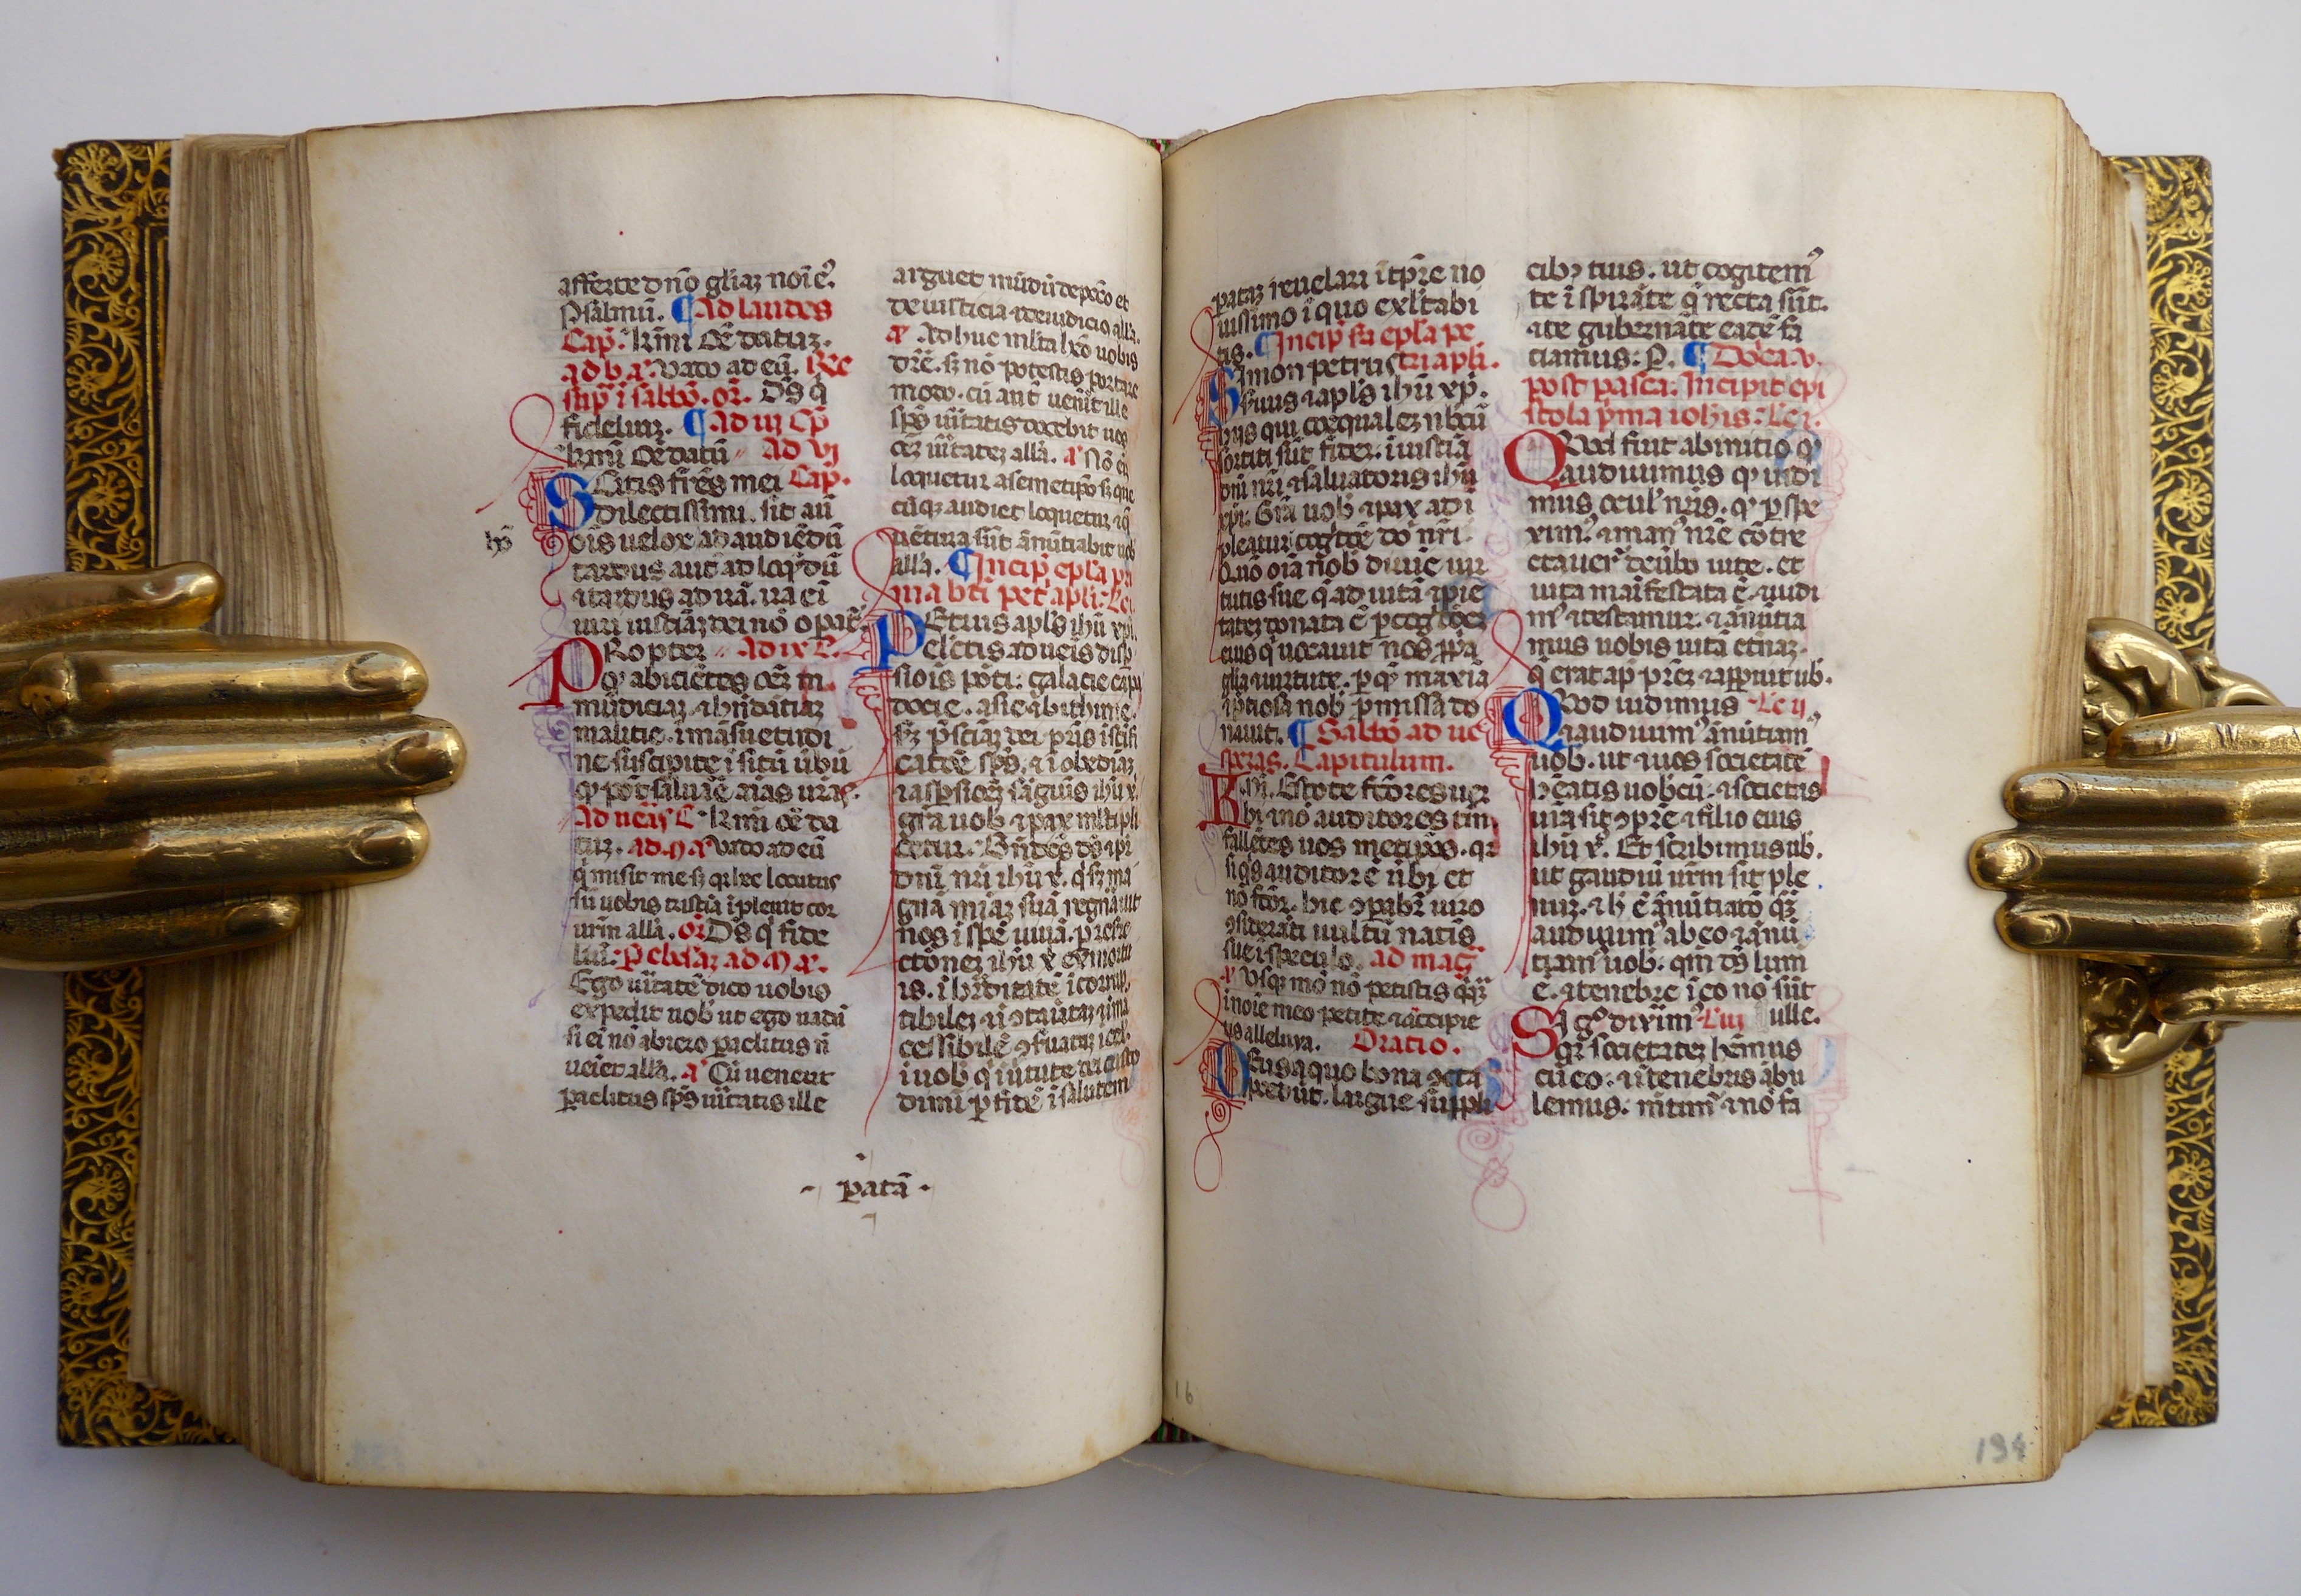 afferte dño gliaz noi eꝰ.
Psalmū. ¶ Ad laudes
Cap. kr̄mi oē datuz.
ad b. a. Vado ad eū.
sup̄ i sabb̄o. or̄. Ds q
fideliuz. ¶ Ad iij Cp̄
kr̄mi oē datū Ad vj
Scitis fr̄es mei Cap.
dilectissimi. sit aū
ois uelox ad audiēdū
tardus aut ad loq̄dū
⁊ tardus ad irā. ira ei
uiri iusticiāz dei nō opat
PRopter Ad ix C.
qꝫ abiciētes oēz in
mūdiciaz ⁊ habūdātiaz
malitie. i māsuetudi
ne suscipite isitū ūbū
qꝫ pōt saluāe aīas uras.
Ad ueīs C kr̄mi oē da
tuz. ad. M a Vado ad eū
q̄ misit me sꝫ qꝛ hec locutus
sū uobis tristia īpleuit cor
ur̄m alla. or̄ Ds q̄ fide
liū. ad M a.
Ego ūitatē dico uobis
expedit uob ut ego uadā
si ei nō abiero paclitus nō
ueiet alla. a Cū uenerit
paclitus sp̄s ūitatis ille
hō
arguet mūdū de pc̄co et
de iusticia ⁊ de iudicio alla.
a. Ad huc mlta hēo uobis
dr̄e. sꝫ nō potestis portare
modo. cū aut̄ uenit ille
sp̄s ūitatis docebit uos
oēz ūitatez alla. a Nō ei
loquetur a semetip̄o sꝫ que
cūqꝫ audiet loquetur ⁊ q̄
uētura sūt ānūtiabit uob
alla. ¶ Incip̄ ep̄la pri
ma bt̄i pet̄ apli: Lc̄i.
PEtrus apl̄s ihū xp̄i
electis aduenis disp
siois pōti: galacie capa
docie. asie ⁊ bithinie.
sꝫ p̄sciāz dei pris ī scifi
catōe sp̄s. ⁊ i obediaz
⁊ aspsionez sāguis ihū x.
gr̄a uob ⁊ pax mltipli
cetur. Bn̄dcs ds ⁊ p̄r
dn̄i nr̄i ihū x. q sꝫ ma
gnā miāz suā regn̄auit
nos i spē uiuā. p resre
ctōnez ihū x ex mortu
is. i hr̄ditatē i corrup
tibilez ⁊ icotaitaz ⁊ īma
cessibilē ꝯseruataz i cel.
i uob q̄ i ūtute dei custo
dimi p fidē i salutem
patā
pataz reuelari i tp̄re no
uissimo i quo exl̄tabi
tis. ¶ Incip̄ sa ep̄la pe
Simon petrus tri apli.
seruus ⁊ apl̄s ihū xp̄.
hijs qui coequalez nbcū
sortiti sūt fidez. i iusticiā
dn̄i nr̄i ⁊ saluatoris ihū
xp̄i. Gr̄a uob ⁊ pax adi
pleatur ī coḡtōe dn̄i nr̄i.
Quō oīa nob diuīe uir
tutis sue q̄ ad uitā ⁊ pie
tatez donata ē p coḡtōez
eius q̄ uocauit nos ppa
gla ⁊ uirtute. p qꝫ maxia
⁊ p̄ciosa nob p̄missa do
nauit. ¶ Sabb̄o ad ue
speras. Capitulum.
Kr̄mi. Estote fctōres uer
bi ⁊ nō auditores tm̄
fallētes uos metip̄os. qꝛ
si q̄s auditor ē ūbi et
nō fctōr. hic ꝯpabr uiro
ꝯsiderāti uultū natis
sue i speculo. ad mag
a Usqꝫ mō nō petistis q̄qꝫ
in noīe meo petite ⁊ accipie
tis alleluya. Oratio.
Deus a quo bona cūcta
p̄cedūt. largire suppli
cibꝫ tuis. ut cogitemꝰ
te i spirāte q̄ recta sūt.
⁊ te gubernāte eadē fa
ciamus: P. ¶ Doīca. v.
post pasca. Incipit epi
stola p̄ma iohis: Lc̄i.
QUod fuit ab initio qꝫ
audiuimus qꝫ uidi
mus ocul̄ nr̄is. qꝫ pspe
ximꝰ. ⁊ manꝰ nr̄e cōtre
ctauer̄ de ūbo uite. et
uita maīfestata ē. ⁊ uidi
mꝰ ⁊ testamur. ⁊ ānūtia
mus uobis uitā etnāz.
q̄ erat ap̄ pr̄ez ⁊ apparuit ub.
QUod uidimus Lc̄ ij
⁊ audiuimꝰ ānūtiamꝰ
uob. ut ⁊ uos societatē
hēatis uobcū. ⁊ societas
nr̄a sit ꝯ pr̄e ⁊ filio eius
ihū x. Et scribimus ub.
ut gaudiū ur̄m sit ple
nuz. ⁊ h ē ānūtiatō quā
audiuimꝰ ab eo ⁊ ānū
tiamꝰ uob. qm̄ ds lum
ē. ⁊ tenebre i eo nō sūt
Si gꝰ dixīmꝰ L iij ulle.
qꝛ societatez hēmus
cū eo. ⁊ i tenebris ābu
lemus. mētimꝰ ⁊ nō fa
16
194